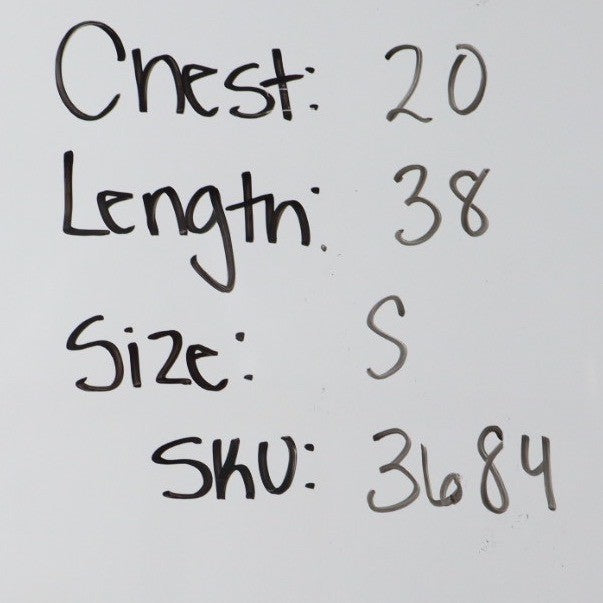 Chest: 20
Length: 38
Size: S
SKU: 3684